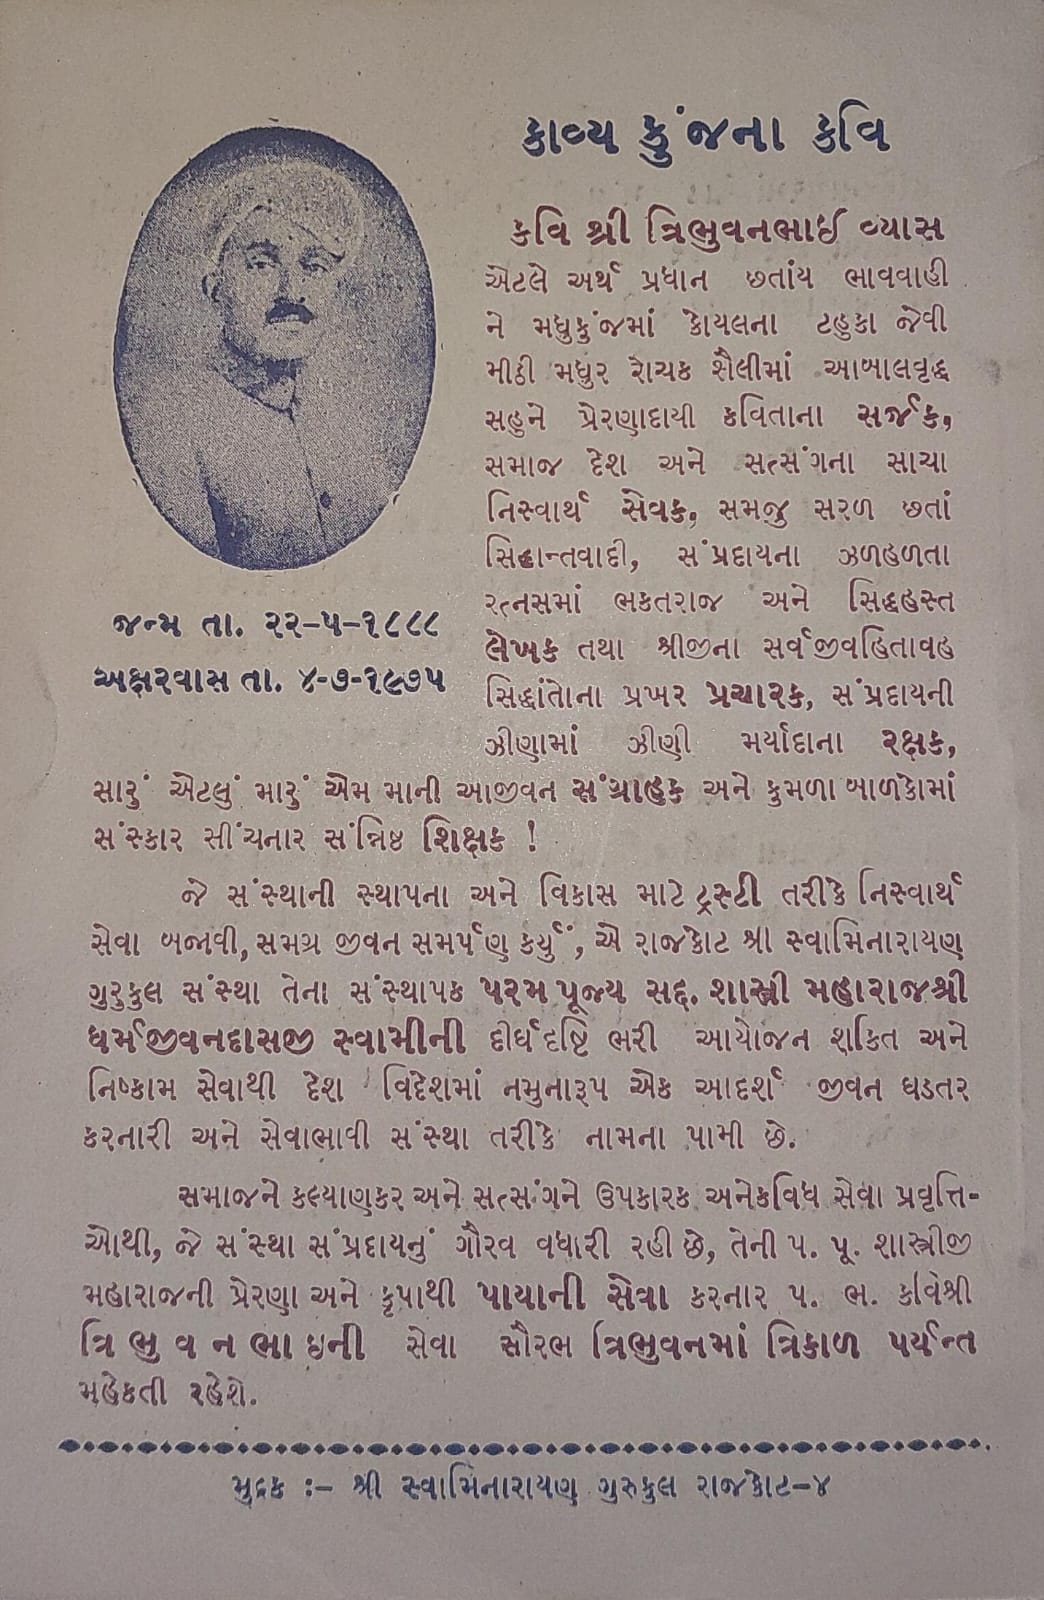 કાવ્ય કુંજના કવિ
કવિ શ્રી ત્રિભુવનભાઈ વ્યાસ
એટલે અર્થ પ્રધાન છતાંય ભાવવાહી
ને મધુકુંજમાં કોયલના ટહુકા જેવી
મીઠી મધુર રોચક શૈલીમાં આબાલવૃદ્ધ
સહુને પ્રેરણાદાયી કવિતાના સર્જક,
સમાજ દેશ અને સત્સંગના સાચા
નિસ્વાર્થ સેવક, સમજુ સરળ છતાં
સિદ્ધાન્તવાદી, સંપ્રદાયના ઝળહળતા
રત્નસમાં ભકતરાજ અને સિદ્ધહસ્ત
લેખક તથા શ્રીજીના સર્વજીવહિતાવહ
સિદ્ધાંતોના પ્રખર પ્રચારક, સંપ્રદાયની
ઝીણામાં ઝીણી મર્યાદાના રક્ષક,
જન્મ તા. ૨૨-૫-૧૮૮૮
અક્ષરવાસ તા. ૪-૭-૧૯૭૫
સારું એટલું મારું એમ માની આજીવન સંગ્રાહક અને કુમળા બાળકોમાં
સંસ્કાર સીંચનાર સંન્નિષ્ઠ શિક્ષક !
જે સંસ્થાની સ્થાપના અને વિકાસ માટે ટ્રસ્ટી તરીકે નિસ્વાર્થ
સેવા બજાવી, સમગ્ર જીવન સમર્પણ કર્યું, એ રાજકોટ શ્રી સ્વામિનારાયણ
ગુરુકુલ સંસ્થા તેના સંસ્થાપક પરમ પૂજ્ય સદ્. શાસ્ત્રી મહારાજશ્રી
ધર્મજીવનદાસજી સ્વામીની દીર્ઘદષ્ટિ ભરી આયોજન શકિત અને
નિષ્કામ સેવાથી દેશ વિદેશમાં નમુનારૂપ એક આદર્શ જીવન ઘડતર
કરનારી અને સેવાભાવી સંસ્થા તરીકે નામના પામી છે.
સમાજને કલ્યાણકર અને સત્સંગને ઉપકારક અનેકવિધ સેવા પ્રવૃત્તિ-
ઓથી, જે સંસ્થા સંપ્રદાયનું ગૌરવ વધારી રહી છે, તેની પ. પૂ. શાસ્ત્રીજી
મહારાજની પ્રેરણા અને કૃપાથી પાયાની સેવા કરનાર પ. ભ. કવિશ્રી
ત્રિભુવનભાઇની સેવા સૌરભ ત્રિભુવનમાં ત્રિકાળ પર્યન્ત
મહેકતી રહેશે.
મુદ્રક :- શ્રી સ્વામિનારાયણ ગુરુકુલ રાજકોટ-૪